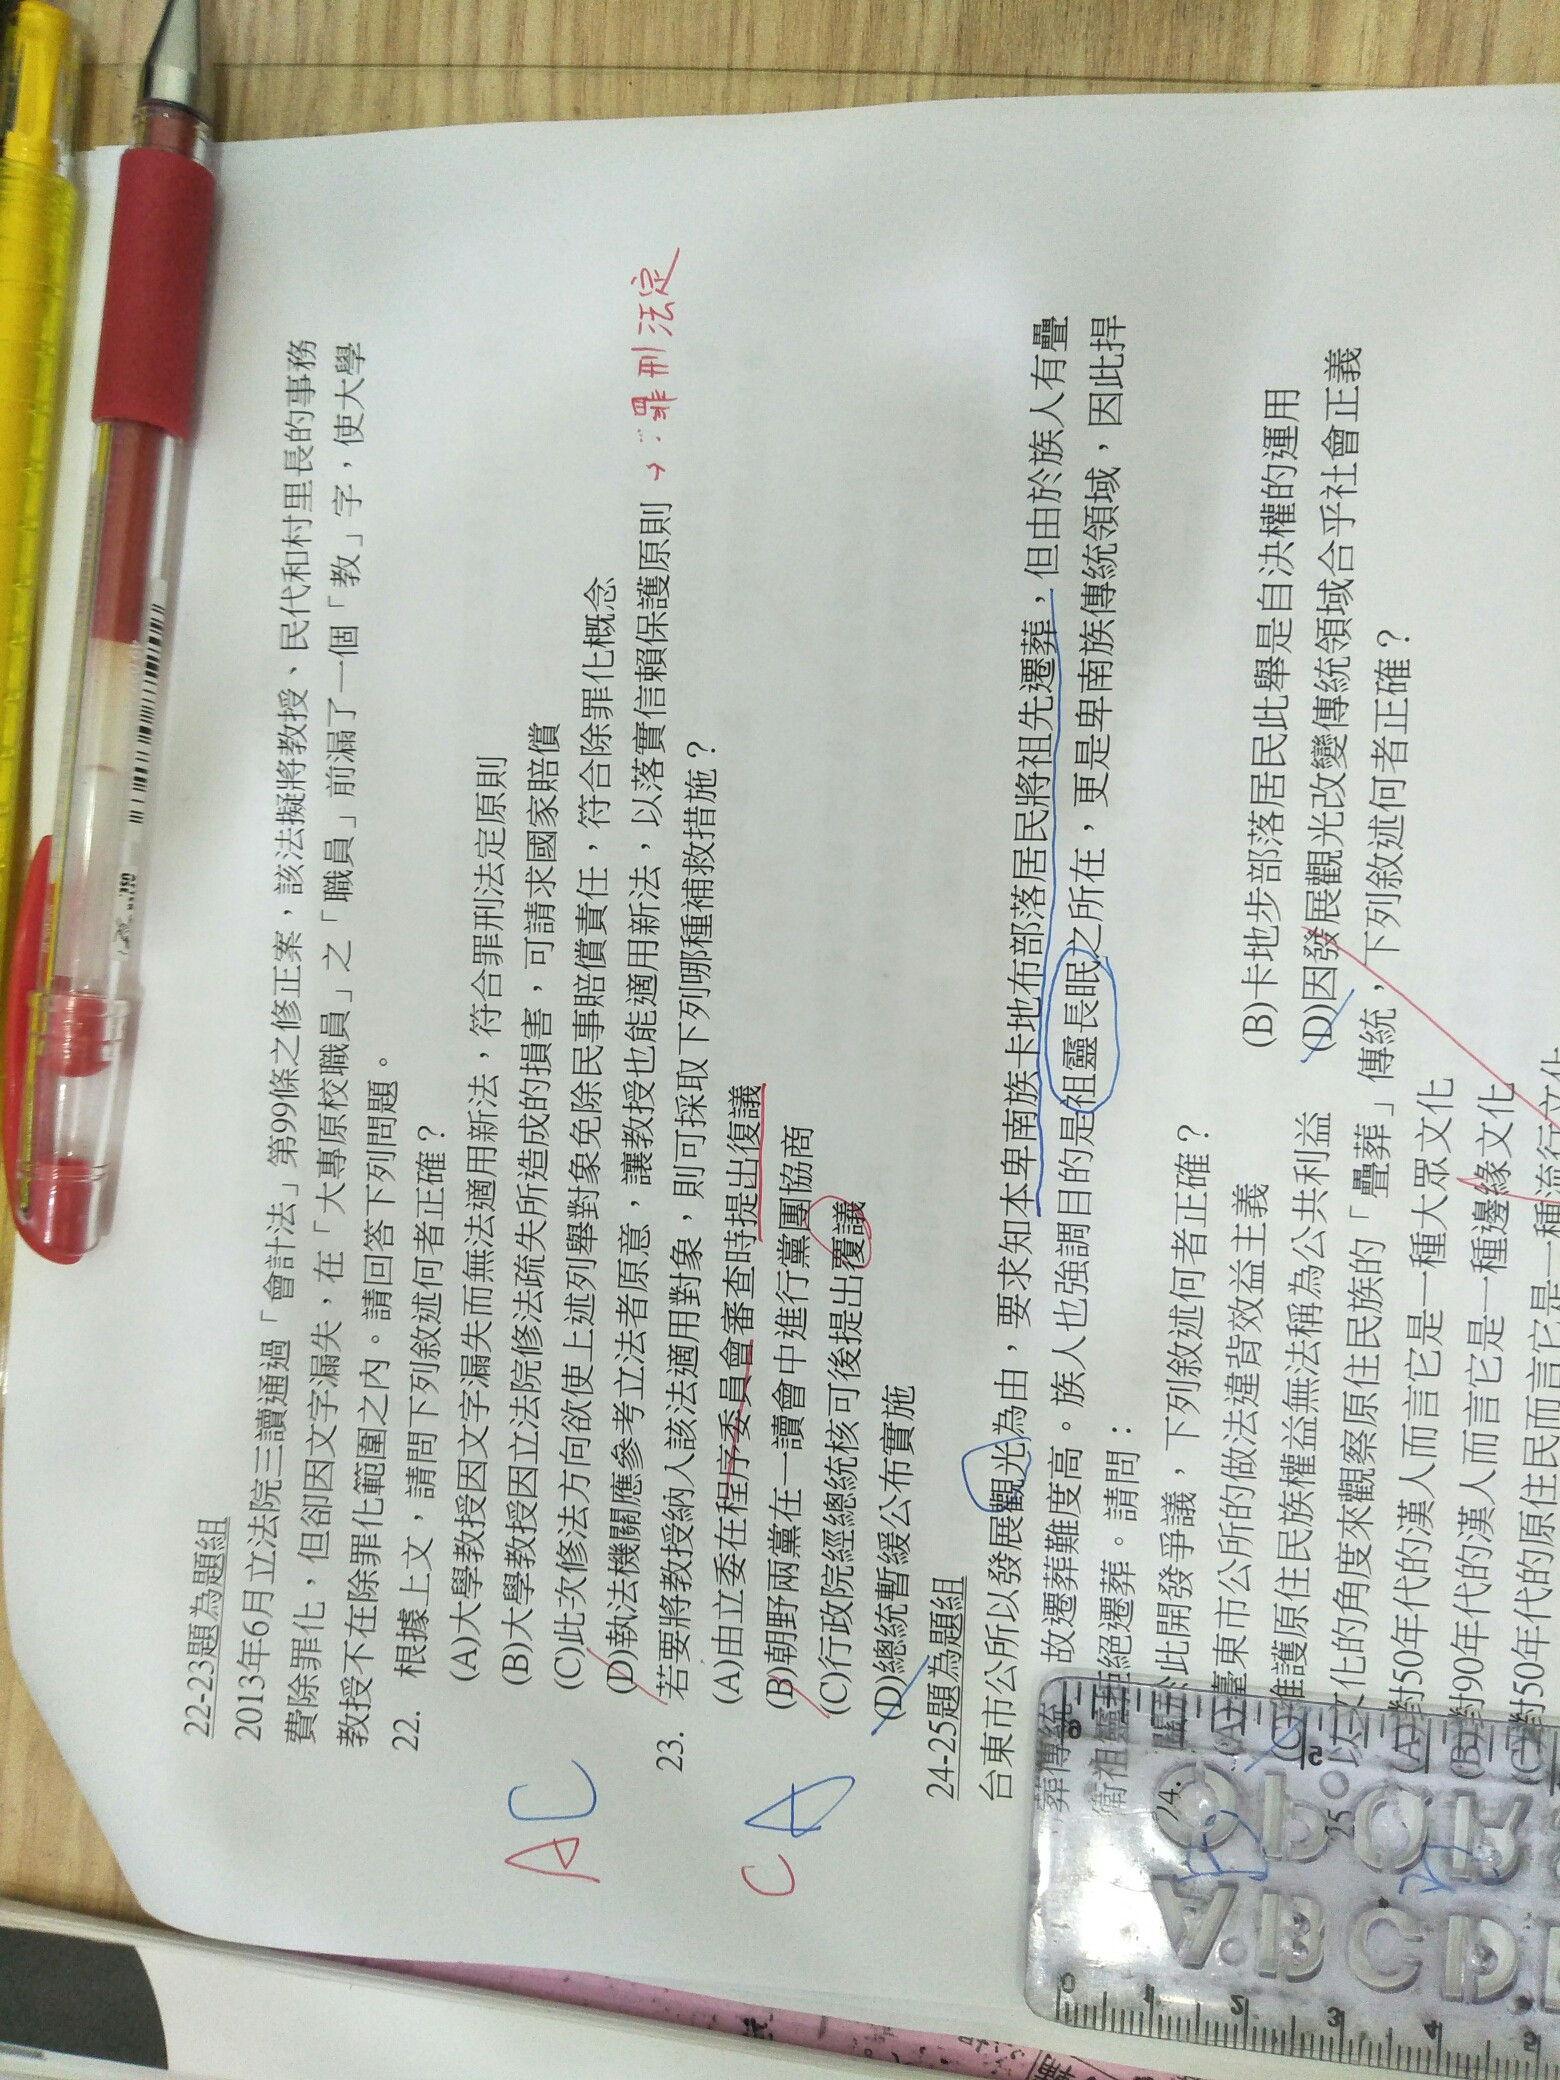 22-23題為題組
2013年6月立法院三讀通過「會計法」第99條之修正案，該法擬將教授、民代和村里長的事務
費除罪化，但卻因文字漏失，在「大專原校職員」之「職員」前漏了一個「教」字，使大學
教授不在除罪化範圍之內。請回答下列問題。
22. 根據上文，請問下列敘述何者正確？
AC
(A)大學教授因文字漏失而無法適用新法，符合罪刑法定原則
(B)大學教授因立法院修法疏失所造成的損害，可請求國家賠償
(C)此次修法方向欲使上述列舉對象免除民事賠償責任，符合除罪化概念
(D)執法機關應參考立法者原意，讓教授也能適用新法，以落實信賴保護原則 → ∵罪刑法定
23. 若要將教授納入該法適用對象，則可採取下列哪種補救措施？
CA
(A)由立委在程序委員會審查時提出復議
(B)朝野兩黨在一讀會中進行黨團協商
(C)行政院經總統核可後提出覆議
(D)總統暫緩公布實施
24-25題為題組
台東市公所以發展觀光為由，要求知本卑南族卡地布部落居民將祖先遷葬，但由於族人有疊
葬傳統，故遷葬難度高。族人也強調目的是祖靈長眠之所在，更是卑南族傳統領域，因此捍
衛祖靈拒絕遷葬。請問：
24. 關於此開發爭議，下列敘述何者正確？
(A)臺東市公所的做法違背效益主義 (B)卡地步部落居民此舉是自決權的運用
(C)維護原住民族權益無法稱為公共利益 (D)因發展觀光改變傳統領域合乎社會正義
25 以文化的角度來觀察原住民族的「疊葬」傳統，下列敘述何者正確？
(A)對50年代的漢人而言它是一種大眾文化
(B)對90年代的漢人而言它是一種邊緣文化
(C)對50年代的原住民而言它是一種流行文化
A B C D
0 1 2 3 4